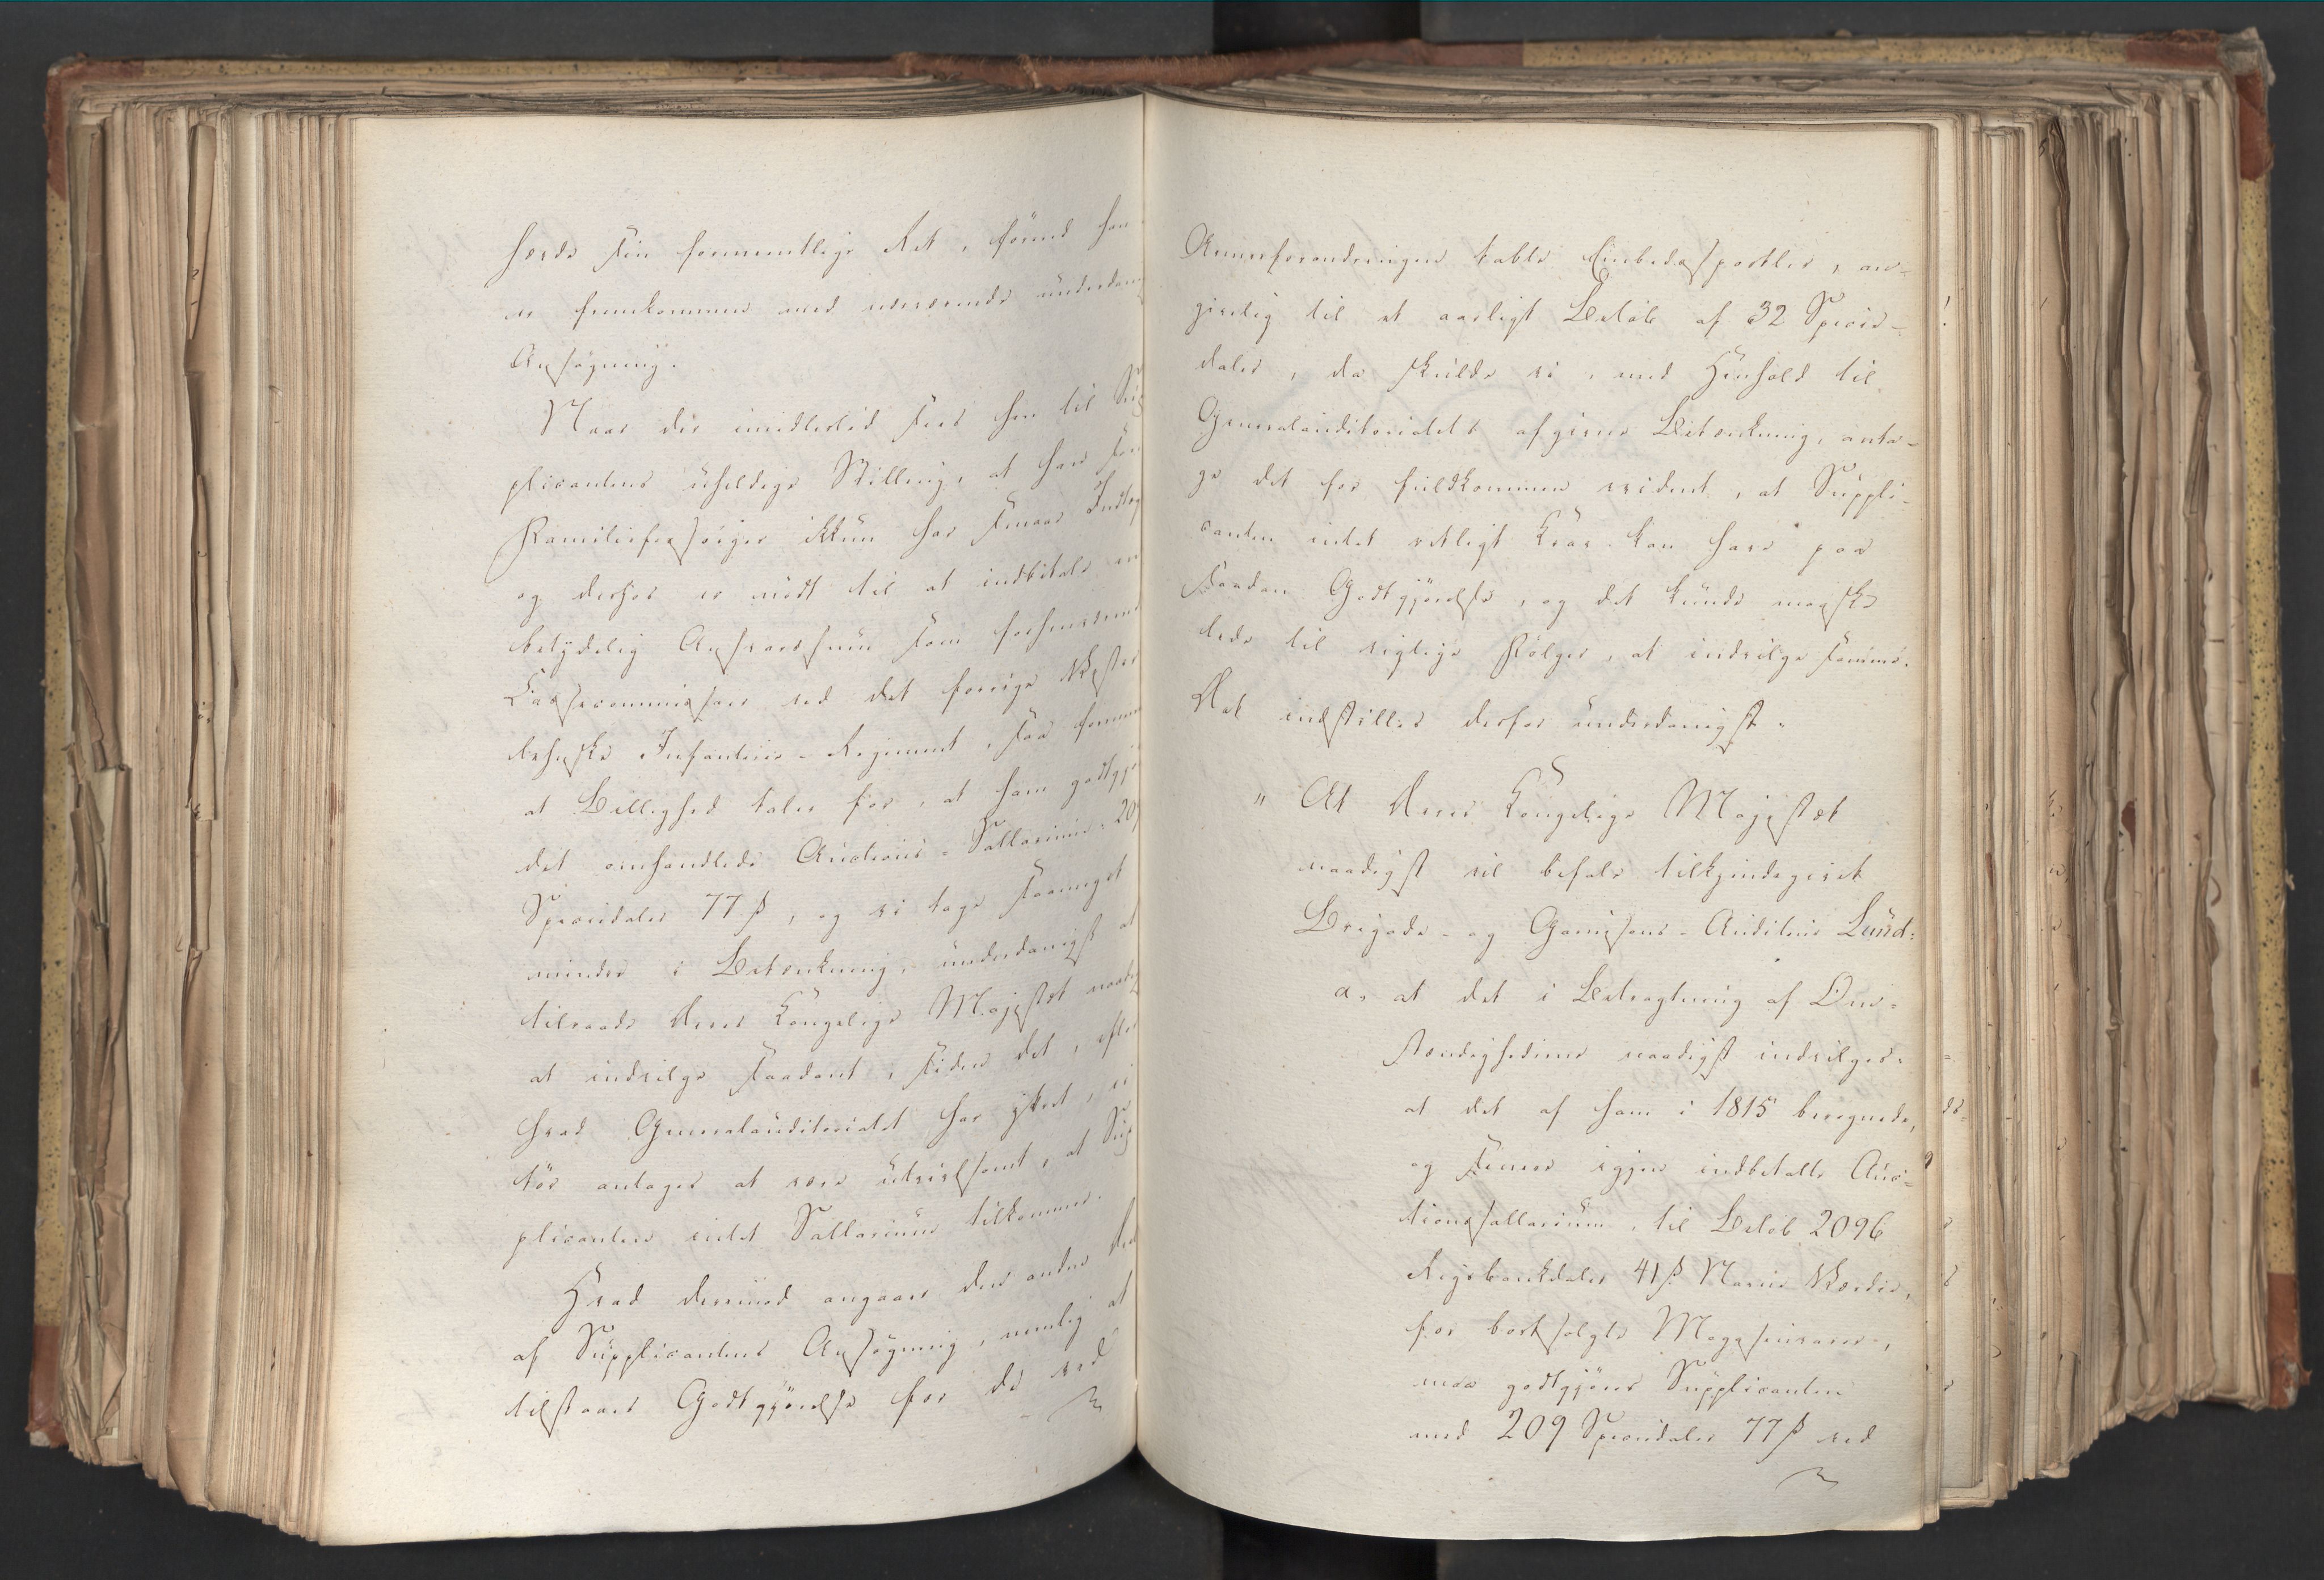 hævde sin formentlige Ret, førend han
er fremkommen med nærværende underdan
Ansøgning.
Naar der imidlertid sees hen til Sup
plicantens uheldige Stilling, at han som
Familieforsørger ikkun har smaae Indtæg
og derhos er nødt til at indbetale en
betydelig Ansvarssum som forhenværend
Casse commissair ved det forrige Vester
lehnske Infanterie-Regiment, saa
at Billighed taler for, at ham godtgjø
det omhandlede Auctions-Sallarium, 209
Speciedaler 77 ß, og vi tage saameget
mindre i Betænkning, underdanigst at
tilraade Deres Kongelige Majestæt naadig
at indvilge saadant, siden det, efter
hvad Generalauditorialet har yttret, ei
tør antages at være utvivlsomt, at Sup
plicanten intet Sallarium tilkommer.
Hvad derimod angaaer den anden Deel
af Supplicantens Ansøgning, nemlig at
tilstaaes Godtgjørelse for de ved
Armeeforandringen tabte Embedssportler, an-
givelig til et aarligt Beløb af 32 Specie-
daler, da skulde vi, med Henhold til
Generalauditorialets afgivne Betænkning, anta-
ge det for fuldkommen evident, at Suppli-
canten intet retligt Krav kan have paa
saadan Godtgjørelse, og det kunde maaske
lede til vigtige Følger, at indvilge samme.
Det indstilles derfor underdanigst:
" At Deres Kongelige Majestæt
naadigst vil befale tilkjendegivet
Brigade- og Garnisons-Auditeur Lund:
a, at det i Betragtning af Om-
stændighederne naadigst indvilges,
at det af ham i 1815 beregnede,
og senere igjen indbetalte Auc-
tionssallarium, til Beløb 2096
Rigsbankdaler 41 ß Navne Værdie,
for bortsolgte Magasinvarer,
maa godtgjøres Supplicanten
med 209 Speciedaler 77 ß ved